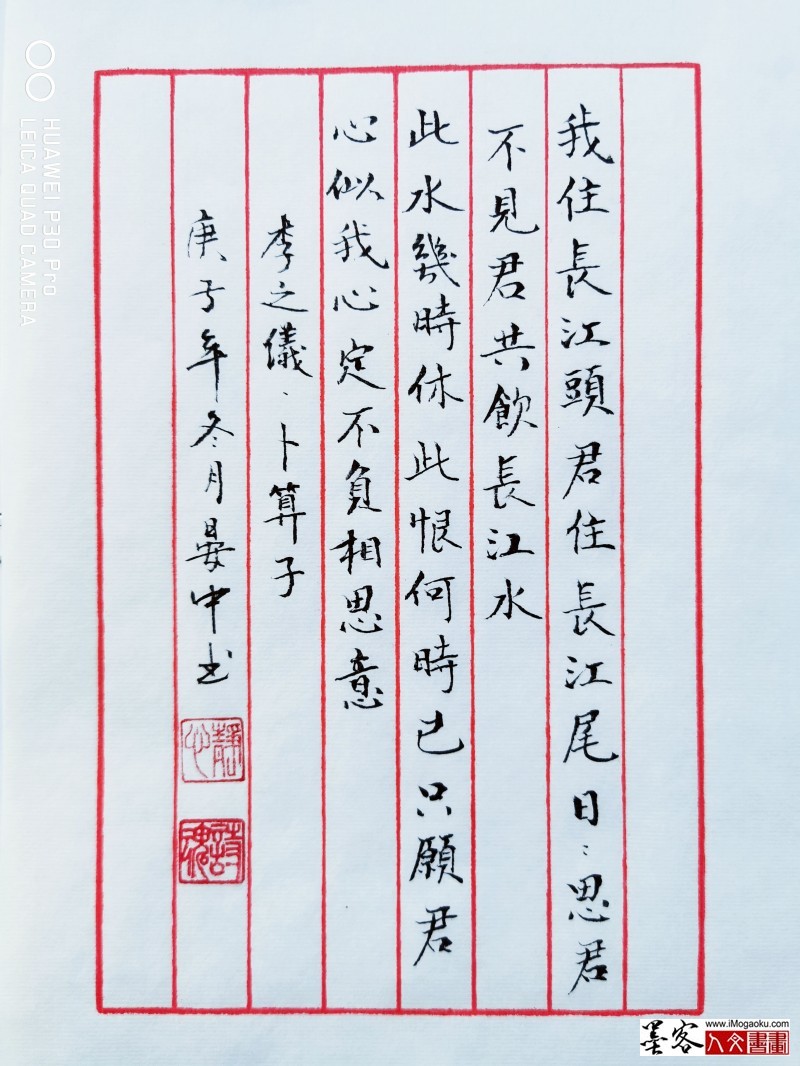 我住長江頭君住長江尾日〻思君
不見君共飲長江水
此水幾時休此恨何時已只願君
心似我心定不負相思意
李之儀、卜算子
庚子年冬月晏中书
靜心
詩魂
HUAWEI P30 Pro
LEICA QUAD CAMERA
墨客
www.iMogaoku.com
人文書畫